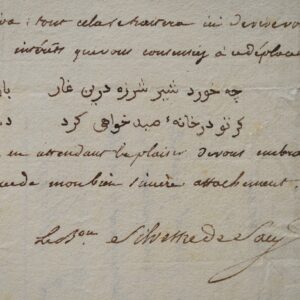 tout cela se traitera ici de vive vo
intérêts que vous
چه خورد شیر شرزه دربن غار با
کر تو درخانهء صید خواهی کرد
en attendant le plaisir de vous embra
de mon bien sincère attachement.
Le Bon Silvestre de Sacy